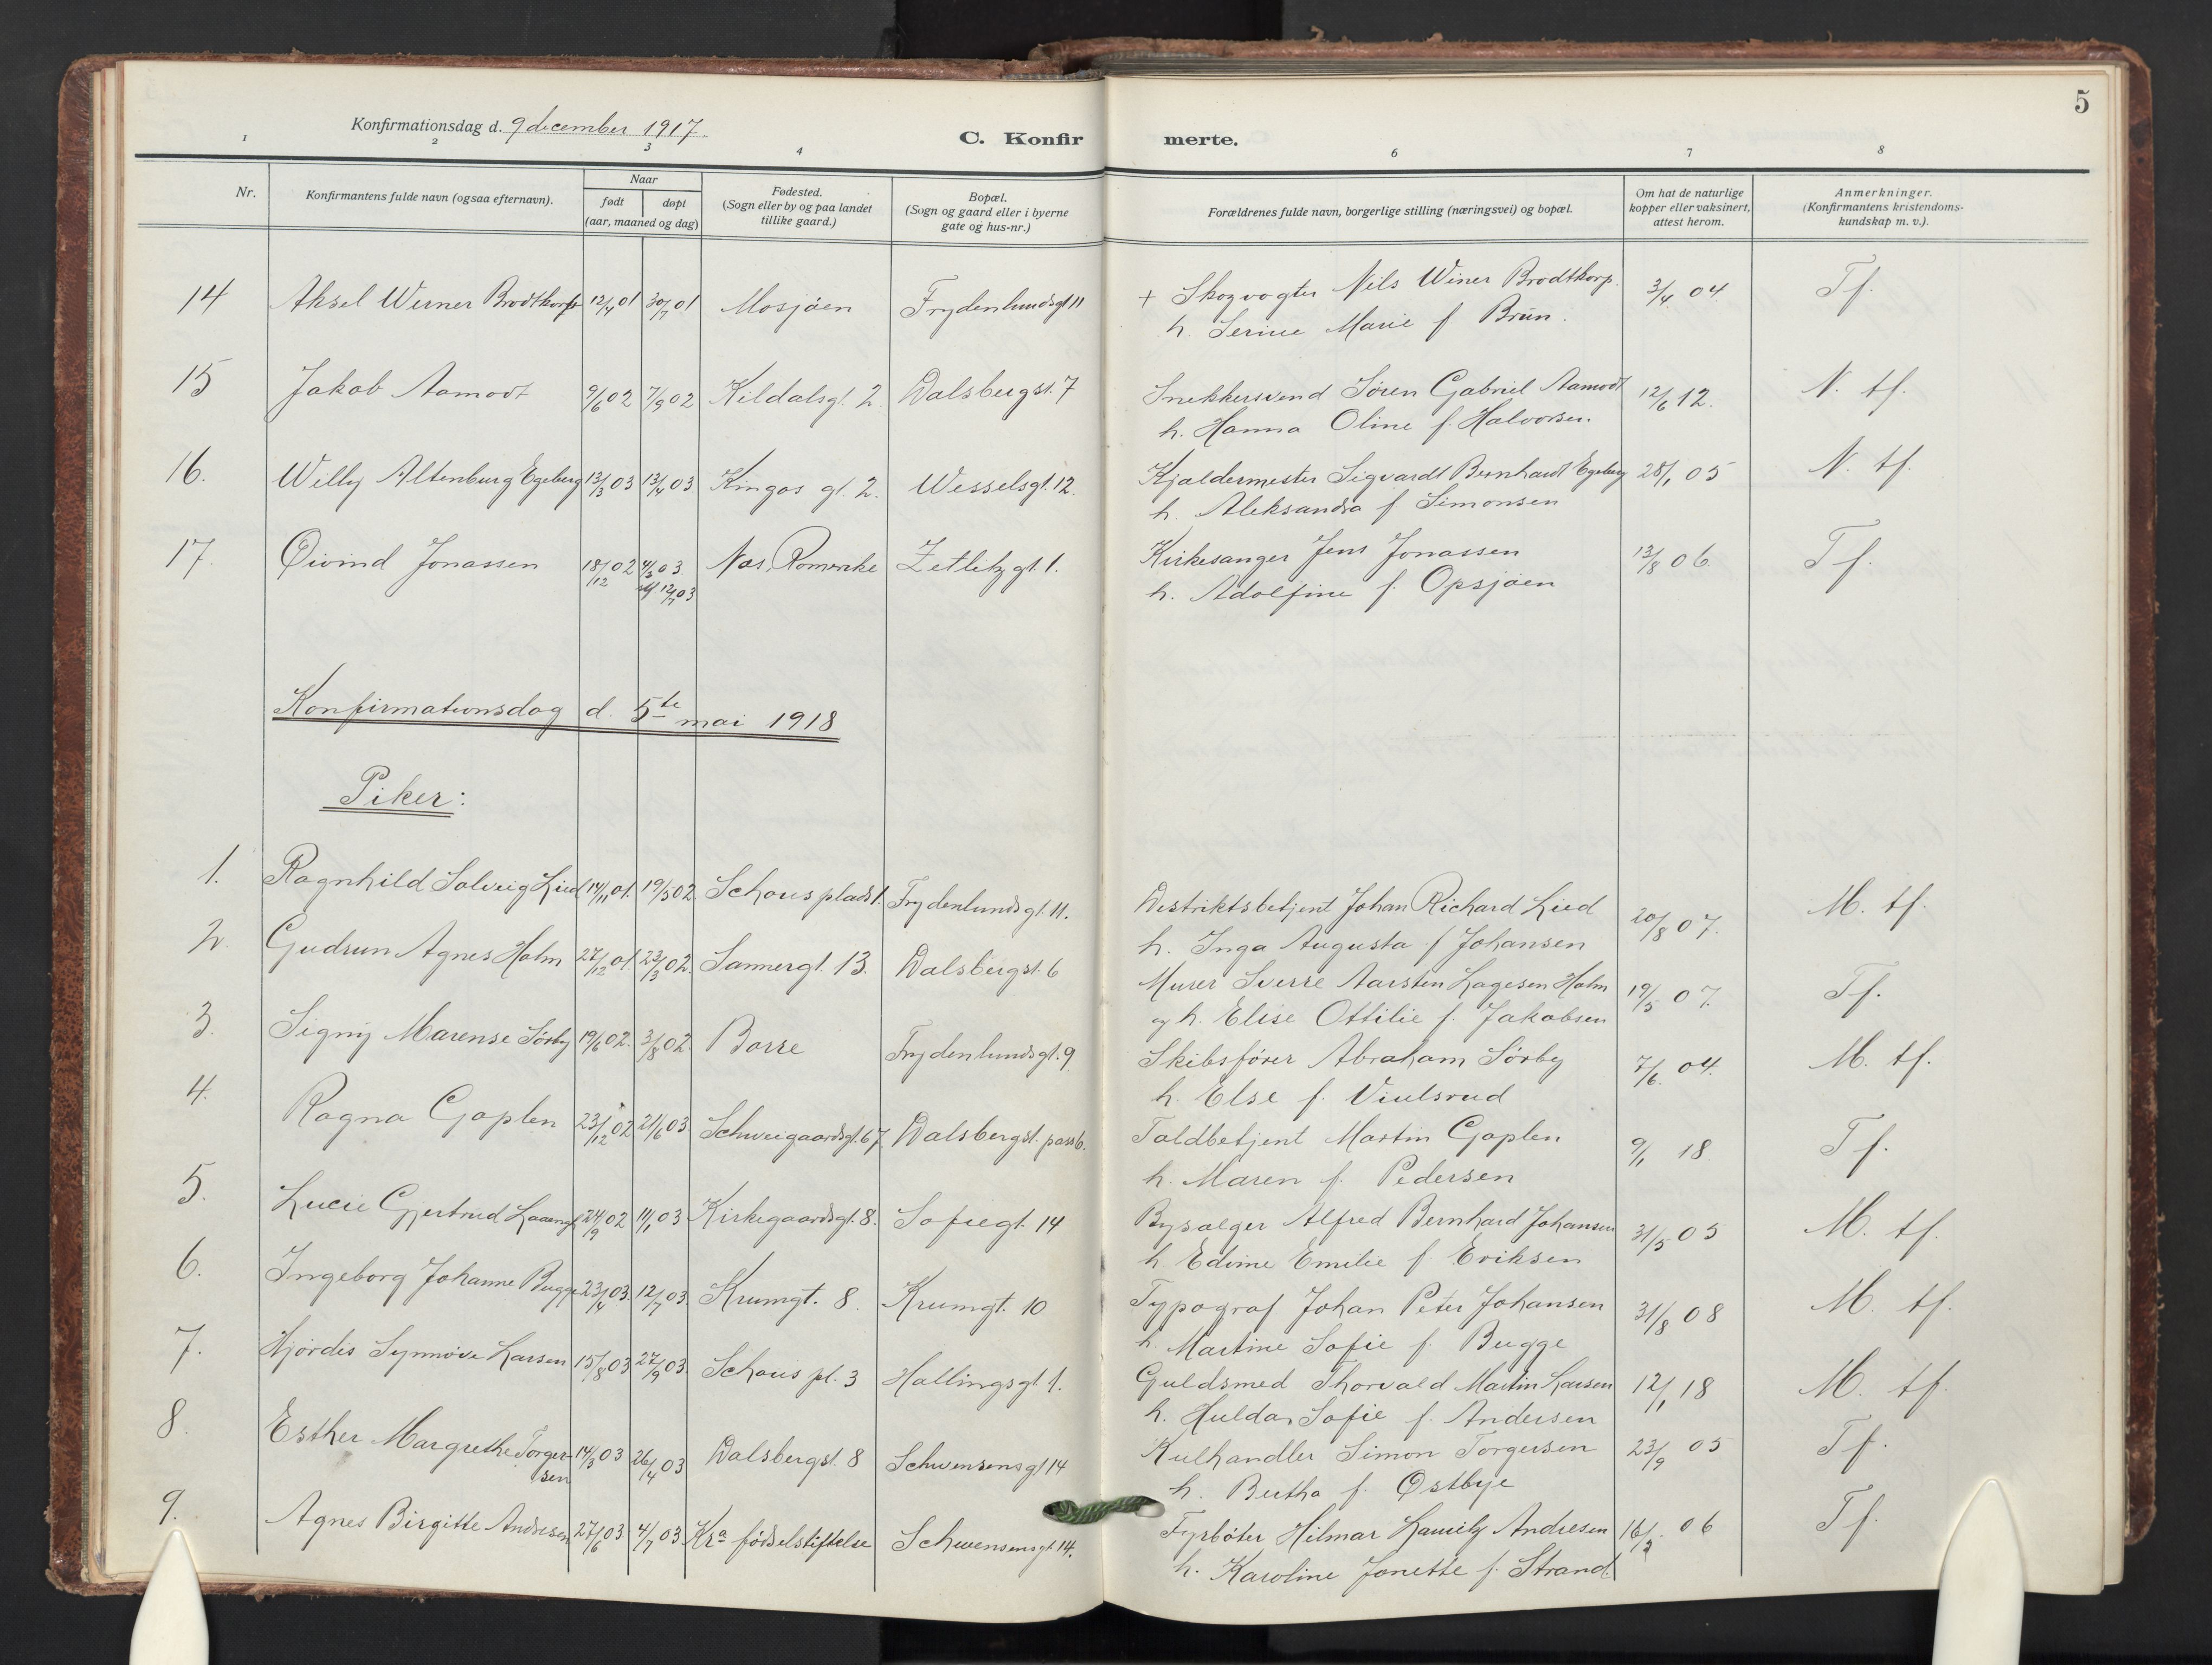 5
Konfirmationsdag d. 9 december 1917.
C. Konfir merte.
1 2 3 4 6 7 8
Nr. Konfirmantens fulde navn (ogsaa efternavn). Naar født døpt (aar, maaned og dag) Fødested. (Sogn eller by og paa landet tillike gaard.) Bopæl. (Sogn og gaard eller i byerne gate og hus-nr.) Forældrenes fulde navn, borgerlige stilling (næringsvei) og bopæl. Om hat de naturlige kopper eller vaksinert, attest herom. Anmerkninger. (Konfirmantens kristendoms-kundskap m. v.).
14 Aksel Werner Brodtkorp 12/4 01 30/7 01 Mosjøen Frydenlundsgt 11 + Skogvogter Nils Winer Brodtkorp. 3/4 04. Tf.
h. Serine Marie f Brun.
15 Jakob Aamodt 9/6 02 7/9 02 Kildalsgt. 2. Dalsbergst. 7 Snekkersvend Søren Gabriel Aamodt 12/6 12. N. tf.
h. Hanna Oline f. Halvorsen.
16. Willy Altenburg Egeberg 13/3 03 13/4 03 Kingos gt. 2. Wesselsgt. 12. Kjældermester Sigvardt Bernhardt Egeberg 28/1 05 N. tf.
h. Aleksandra f. Simonsen
17. Øivind Jonassen 18/12 02 4/3 03 12/7 03 Nes, Romerike Zetlitz gt. 1. Kirkesanger Jens Jonassen 13/8 06. Tf.
h. Adolfine f. Opsjøen
Konfirmationsdag d. 5te mai 1918
Piker:
1. Ragnhild Solveig Lied 14/11 01. 19/5 02. Schous plads 1. Frydenlundsgt. 11. Destriktsbetjent Johan Richard Lied 20/8 07. M. tf.
h. Inga Augusta f Johansen
2. Gudrun Agnes Holm 27/12 01. 23/3 02. Sannergt. 13. Dalsbergst. 6 Murer Sverre Aarsten Lagesen Holm 19/5 07. Tf.
og h. Elise Ottilie f. Jakobsen
3. Signy Marense Sørby 19/6 02. 3/8 02. Borre Frydenlundsgt. 9 Skibsfører Abraham Sørby 7/6. 04. M. tf.
h. Else f. Viulsrud
4. Ragna Gaplen 23/12 02 21/6 03. Schweigaardsgt. 67 Dalsbergst. pass 6. Toldbetjent Martin Gaplen 9/1 18. Tf.
h. Maren f. Pedersen
5. Lucie Gjertrud 24/9 02 11/1 03 Kirkegaardsgt. 8. Sofiegt. 14 Bysælger Alfred Bernhard Johansen 31/5 05 M. tf.
h Edine Emilie f Eriksen
6. Ingeborg Johanne Bugge 23/4 03. 12/7 03. Krumgt. 8. Krumgt. 10 Typograf Johan Peter Johansen 31/8 08 M. tf.
h. Martine Sofie f. Bugge
7. Hjørdis Synnøve Larsen 15/8 03 27/9 03. Schous pl. 3 Hallingsgt. 1. Guldsmed Thorvald Martin Larsen 12/1 18 M. tf.
h. Hulda Sofie f. Andersen
8. Esther Margrethe Torger- 14/3 03 26/4 03 Dalsbergst. 8 Schwensensgt 14 Kulhandler Simon Torgersen 23/9 05 Tf.
sen h. Bertha f. Østbye
9. Agnes Birgitte Andresen 27/6 03 4/7 03 Kra fødselstiftelse Schwensensgt. 14. Fyrbøter Hilmar Andresen 16/2 06 Tf.
h. Karoline Jonette f. Strand.